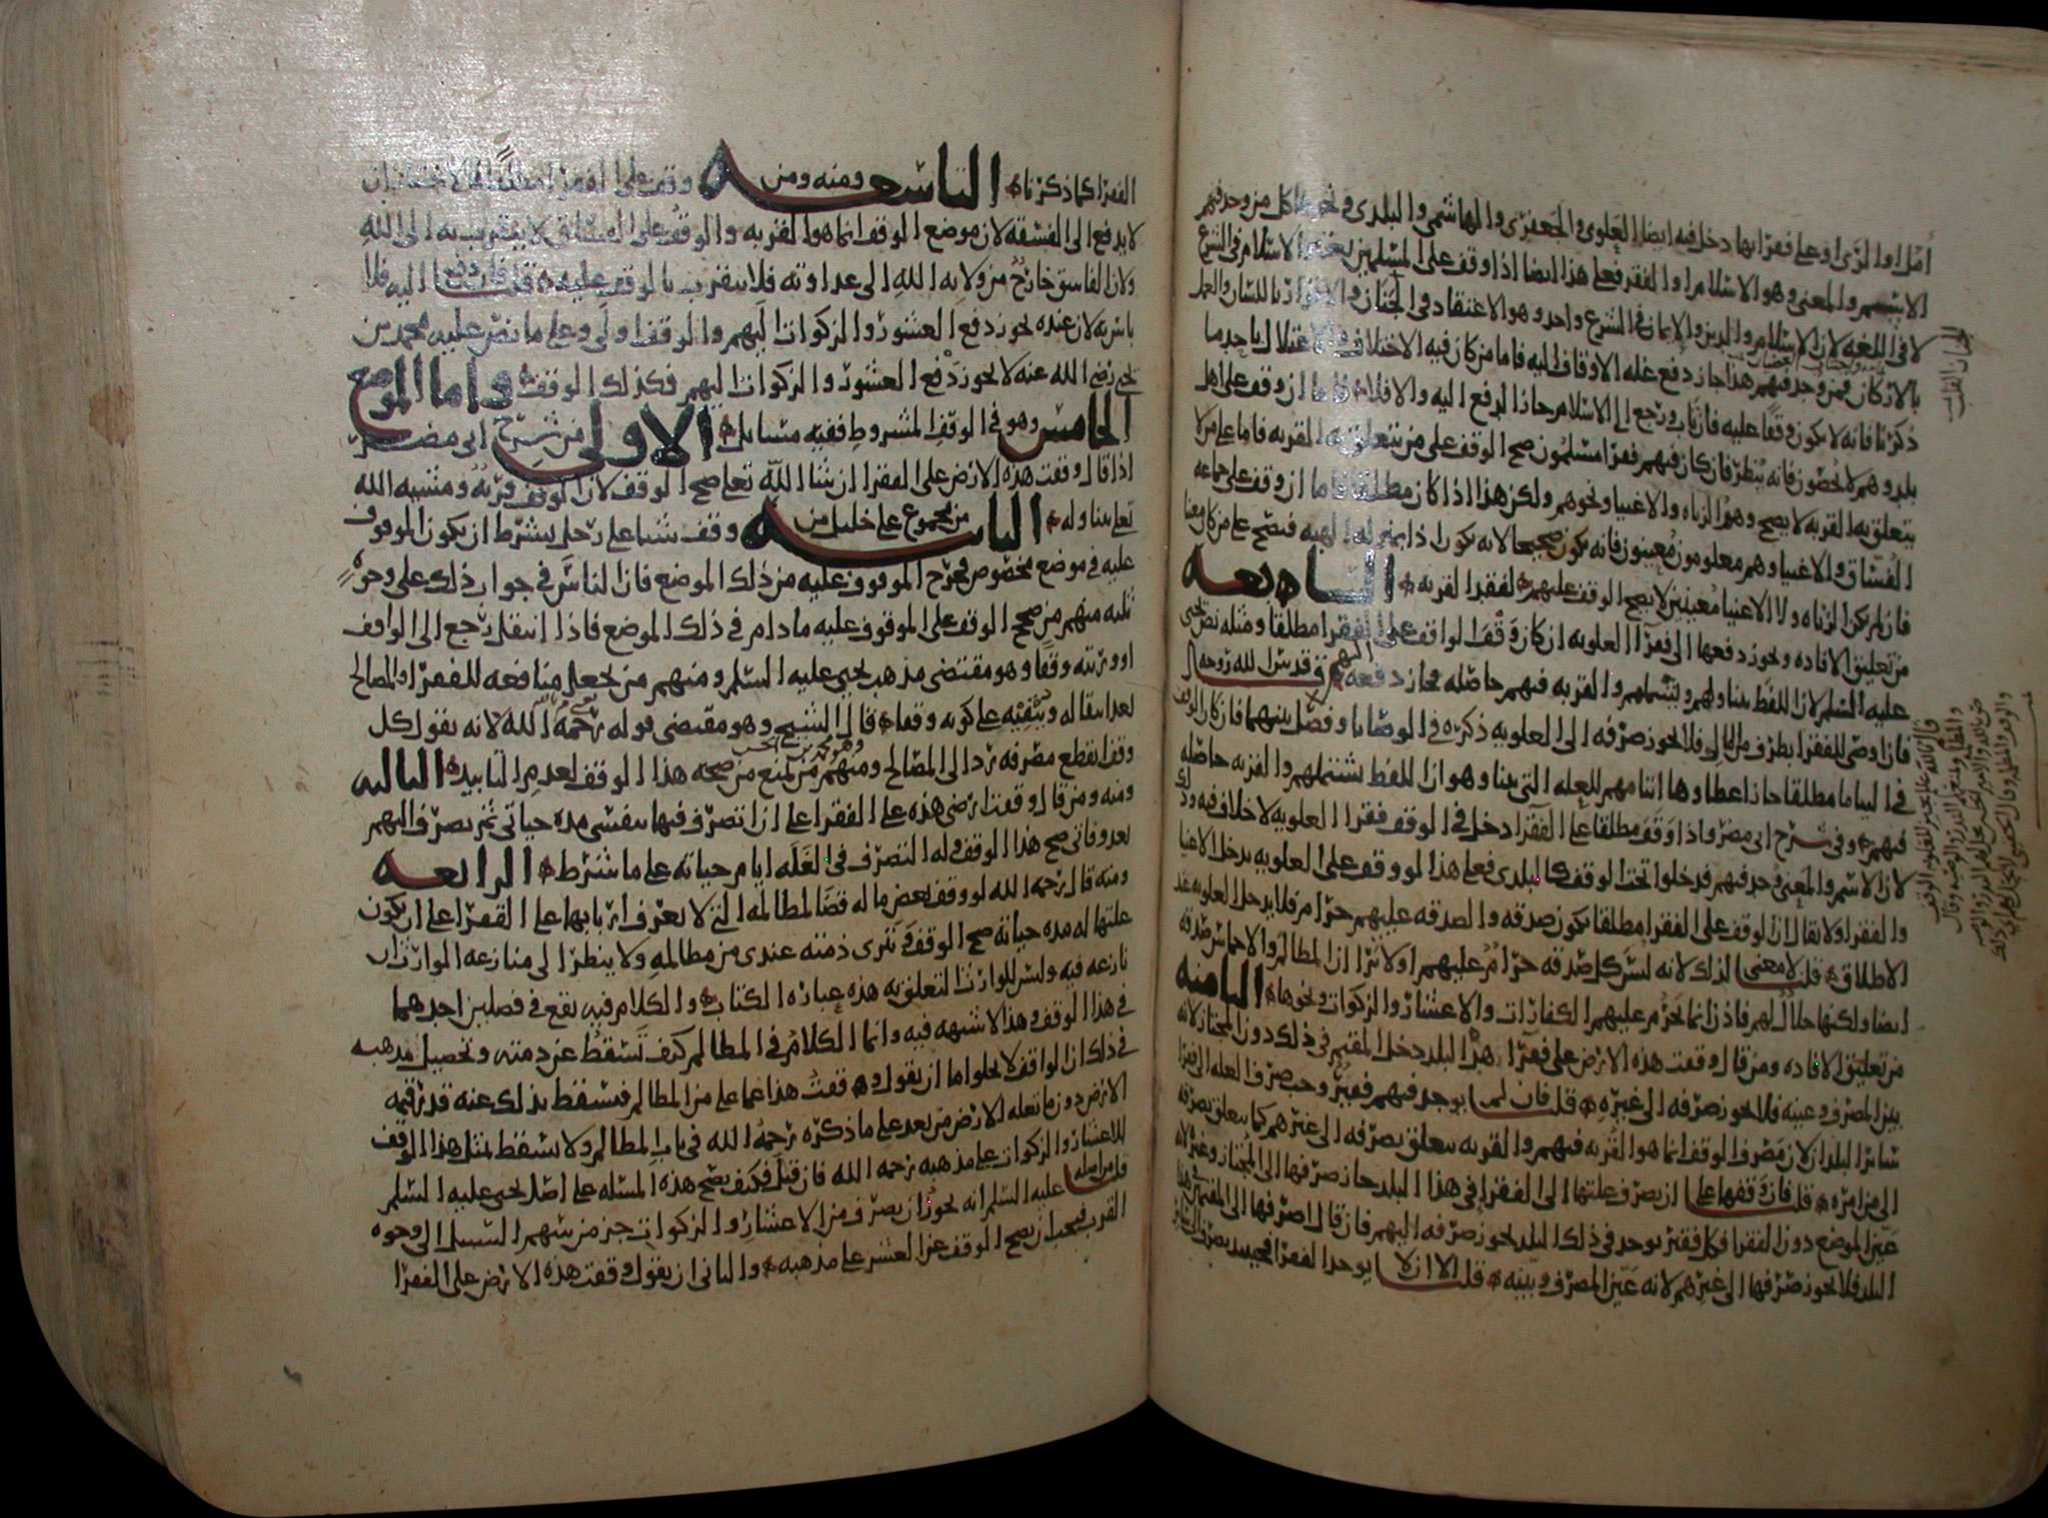 امل او الرى او على فقرابها دخل فيه ايضا العلوى والجعفرى والهاشمى والبلدى ونحو هذا كل من وجد فيهم
الاسم والمعنى وهو الاسلام او الفقر فعلى هذا ايضا اذا وقف على المسلمين يعتبر الاسلام فى الشرع
لا فى اللغه لان الاسلام والدين والايمان فى الشرع واحد وهو الاعتقاد فى الجنان والاقرار باللسان والعمل
بالاركان فمن وجد فيهم هذا جاز دفع غله الاوقاف اليه فاما من كان فيه الاختلاف والاعتلال باحد ما
ذكرنا فانه لا يكون وقفا عليه فان تاب ورجع الى الاسلام جاز الدفع اليه والا فلا فاما ان وقف على اهل
بلد وهم لا يحصون فانه ينظر فان كان فيهم فقرا مسلمون صح الوقف على من يتعلق به القربه فاما على من لا
يتعلق به القربه لا يصح وهو الزناه والاغنيا ونحوهم ولكن هذا اذا كان مطلقا فاما ان وقف على جماعه
الفساق والاغنيا وهم معلومون معينون فانه يكون صحيحا لانه يكون ذا بمنزله الهبه فتصح على من كان معينا
فان لم يكن الزناه ولا الاغنيا معينين لا يصح الوقف عليهم لفقد القربه السابعه
من تعليق الافاده ويجوز دفعها الى فقرا العلويه ان كان وقف الواقف على الفقرا مطلقا ومثله نص يحيى
عليه السلم لان اللفظ يتناولهم ويشملهم والقربه فيهم حاصله فجاز دفعه اليهم قدس الله روحه
فان اوصى للفقرا بطرف من المال فلا يجوز صرفه الى العلويه ذكره فى الوصايا وفصل بينهما فان كان الوقف
فى البيابا مطلقا جاز اعطاوها ايتامهم للعله التى بينا وهو ان اللفظ يشتملهم والقربه حاصله
فيهم وفى شرح ابى مضر واذا وقف مطلقا على الفقرا دخل فى الوقف فقرا العلويه لا خلاف فيه وذلك
لان الاسم والمعنى وجد فيهم فدخلوا تحت الوقف كالبلدى فعلى هذا لو وقف على العلويه يدخل الاغنيا
والفقرا ولا يقال ان الوقف على الفقرا مطلقا يكون صدقه والصدقه عليهم حرام فلا يدخل العلويه عند
الاطلاق قلت لا معنى لذلك لانه ليس كل صدقه حرام عليهم اولا ترا ان المظالم والاخماس صدقه
ايضا ولكنها حلال لهم فاذن انما يحرم عليهم الكفارات والاعشار والزكوات ونحوها الثامنه
من تعليق الافاده ومن قال وقفت هذه الارض على فقرا هذا البلد دخل المقيم فى ذلك دون المجتاز لانه
بين المصرف وعينه فلا يجوز صرفه الى غيره قلت فان لم يوجد فيهم فقير وجب صرف الغله الى فقرا
سائر البلدان لان مصرف الوقف انما هو القربه فيهم والقربه يتعلق بصرفه الى غيرهم كما يتعلق بصرفه
الى من امره قلت فان وقفها على ان يصرف غلتها الى الفقرا فى هذا البلد جاز صرفها الى المجتاز وغيره لانه
عين الموضع دون الفقرا فكل فقير يوجد فى ذلك البلد يجوز صرفه اليهم فان قال اصرفها الى المقيم فى هذا
البلد فلا يجوز صرفها الى غيرهم لانه عين المصرف وبينه قلت الا ان لا يوجد الفقرا فحينئذ يصرف
الفقرا كما ذكرنا التاسعه ومنه ومن وقف على الفقرا مطلقا
لا يدفع الى الفسقه لان موضع الوقف انما هو القربه والوقف على الفساق لا يتقرب به الى الله
ولان الفاسق خارج من ولايه الله الى عداوته فلا يتقرب بالوقف عليه قلت فان دفع اليه فلا
باس به لان عنده يجوز دفع العشور والزكوات اليهم والوقف اولى وعلى ما نص عليه محمد بن
يحيى رضى الله عنه لا يجوز دفع العشور والزكوات اليهم فكذلك الوقف واما الموضع
الخامس وهو فى الوقف المشروط ففيه مسائل الاولى من شرح ابى مضر
اذا قال وقفت هذه الارض على الفقرا ان شا الله تعلى صح الوقف لان الوقف قربه ومشيه الله
تعلى يتناوله الثانيه من مجموع على خليل من وقف شيئا على رجل بشرط ان يكون الموقوف
عليه فى موضع مخصوص فخرج الموقوف عليه من ذلك الموضع فان الناس فى جواز ذلك على وجوه
ثلثه منهم من صحح الوقف على الموقوف عليه ما دام فى ذلك الموضع فاذا انتقل رجع الى الواقف
او ورثته وقفا وهو مقتضى مذهب يحيى عليه السلم ومنهم من يجعل منافعه للفقرا او المصالح
بعد انتقاله ويبقيه على كونه وقفا قال الشيخ وهو مقتضى قوله رحمه الله لانه يقول كل
وقف انقطع مصرفه رد الى المصالح ومنهم من يمنع من صحه هذا الوقف لعدم التابيد الثالثه
ومنه ومن قال وقفت ارضى هذه على الفقرا على ان اتصرف فيها بنفسى مده حياتى ثم يصرف اليهم
بعد وفاتى صح هذا الوقف وله التصرف فى الغله ايام حياته على ما شرط الرابعه
ومنه قال رحمه الله لو وقف بعض ماله قضا لمظالمه التى لا يعرف اربابها على الفقرا على ان يكون
غلتها له مده حياته صح الوقف وتبرى ذمته عندى من مظالمه ولا ينظر الى منازعه الوارث ان
نازعه فيه وليس للوارث التعلق به هذه عباره الكتاب والكلام فيه يقع فى فصلين احدهما
فى هذا الوقف وهذا لا شبهه فيه وانما الكلام فى المظالم كيف تسقط عن ذمته وتحصيل مذهبه
فى ذلك ان الواقف لا يخلوا اما ان يقول وقفت هذا عما على من المظالم فتسقط بذلك عنه قدر قيمه
الارض دون ما تغله الارض من بعد على ما ذكره رحمه الله فى باب المظالم ولا يسقط بمثل هذا الوقف
للاعشار والزكوات على مذهبه رحمه الله فان قيل فكيف يصح هذه المسله على اصل يحيى عليه السلم
قلت من اصله عليه السلم انه يجوز ان يصرف من الاعشار والزكوات جز من سهم السبيل الى وجوه
القرب فيجب ان يصح الوقف عن العشر على مذهبه والثانى ان يقول وقفت هذه الارض على الفقرا